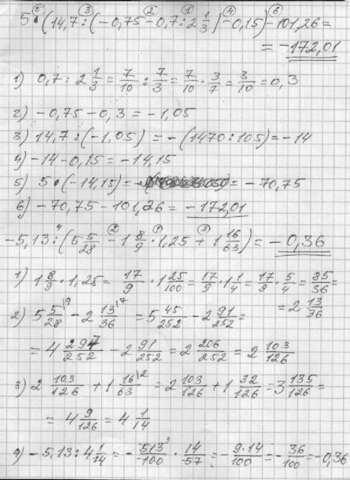 5·(14,7:(-0,75-0,7:2 1/3)-0,15)-101,26=
=-172,01
1) 0,7:2 1/3=7/10:7/3=7/10·3/7=3/10=0,3
2) -0,75-0,3=-1,05
3) 14,7:(-1,05)=-(1470:105)=-14
4) -14-0,15=-14,15
5) 5·(-14,15)= = -70,75
6) -70,75-101,26=-172,01
-5,13:(5 5/28-1 8/9·1,25+1 16/63)=-0,36
1) 1 8/9·1,25=17/9·1 25/100=17/9·1 1/4=17/9·5/4=85/36=
=2 13/36
2) 5 5/28-2 13/36=5 45/252-2 91/252=
=4 297/252-2 91/252=2 206/252=2 103/126
3) 2 103/126+1 16/63=2 103/126+1 32/126=3 135/126=
=4 9/126=4 1/14
4) -5,13:4 1/14=-513/100·14/57=-9·14/100=-36/100=-0,36